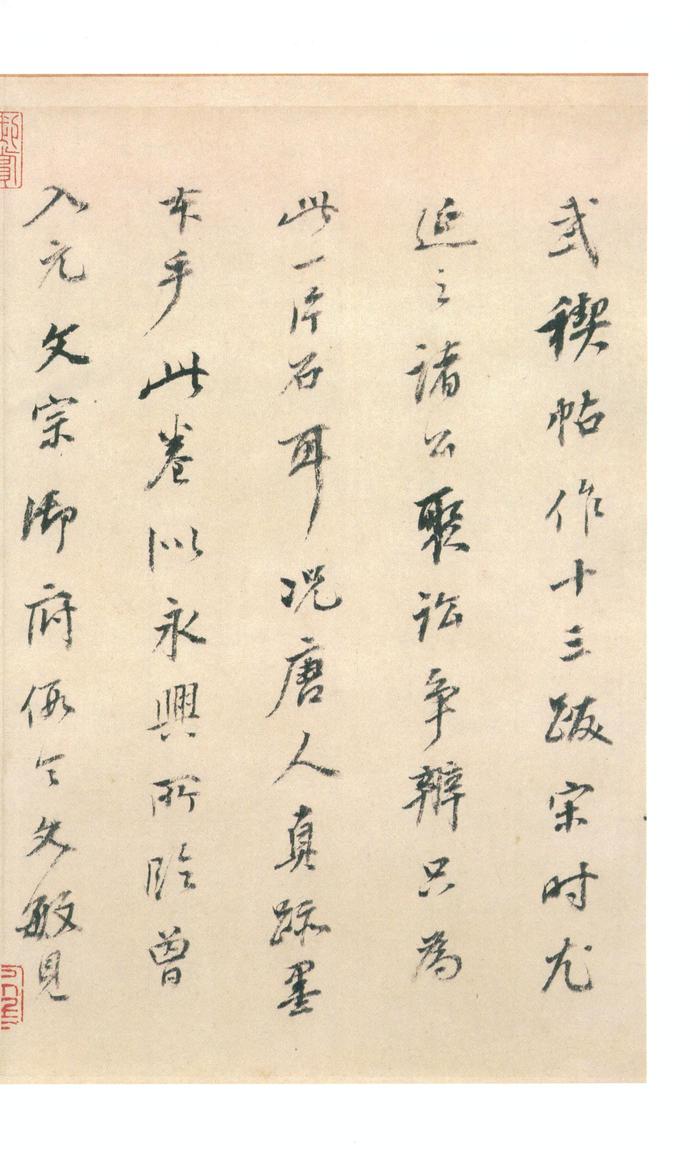 武禊帖作十三跋宋时尤
延之諸公聚訟争辧只為
此一片石耳况唐人真跡墨
本乎此卷似永興所臨曽
入元文宗御府假令文敏見